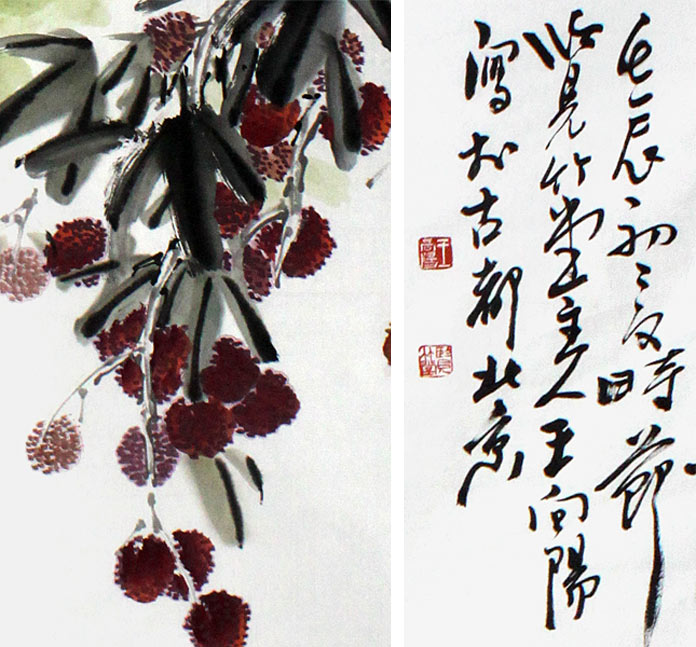 壬辰初夏時節
竹堂主人王向陽
寫於古都北京